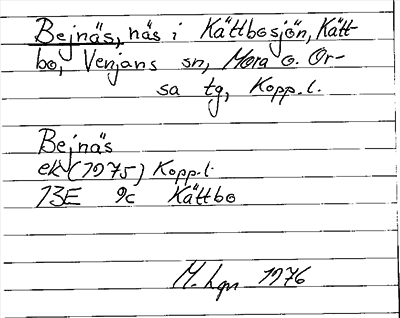 Bejnäs, näs i Kättbosjön, Kätt-
bo, Venjans sn, Mora o. Or-
sa tg, Kopp.l.
Bejnäs
ek (1975) Kopp.l.
13E 9c Kättbo
M. Lgn 1976